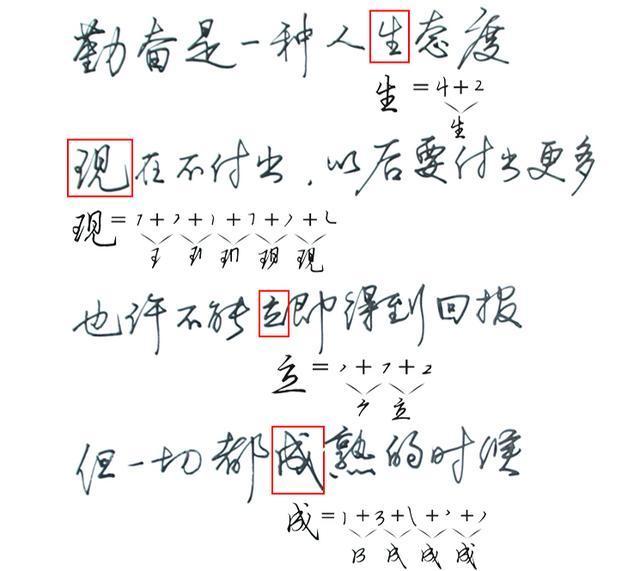 勤奋是一种人生态度
生 = 4 + 2
生
现在不付出，以后要付出更多
现 = 7 + 7 + 1 + 7 + 7 + L
王 现 现
也许不能立即得到回报
立 = 丶 + 7 + 2
立
但一切都成熟的时候
成 = 1 + 3 + \ + 丶 + 丿
成 成 成